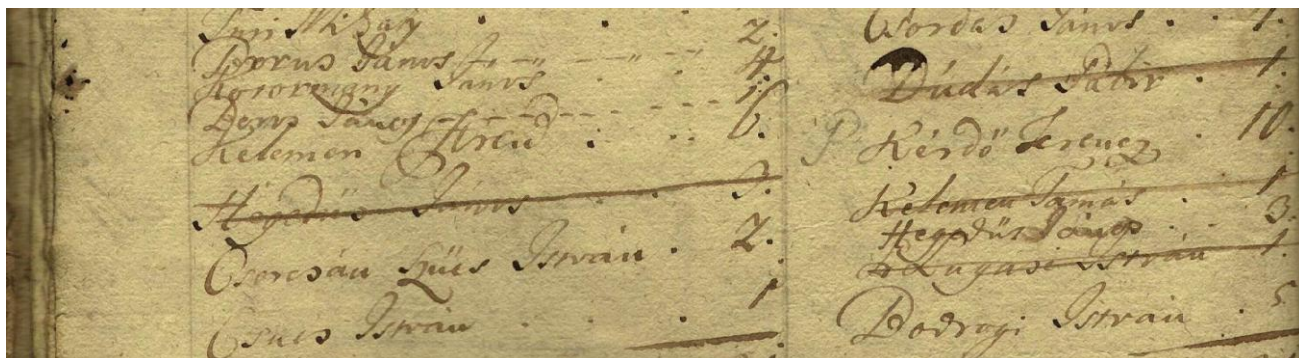 Turi Mihaly . . 2.
Porus János 4.
Kosormány János . . 1.
Deme János
Kelemen . . . 6.
Hegedüs János . . 3.
Csorcsán Szücs István . 2.
Csucs István . . 1
Csordás János . . 4.
Dúdás Péter . 1.
P Kérdő Ferencz . 10.
Kelemen Tamás . 1
Hegedűs János . . 3.
Lugasi István 1.
Bodrogi István . 5